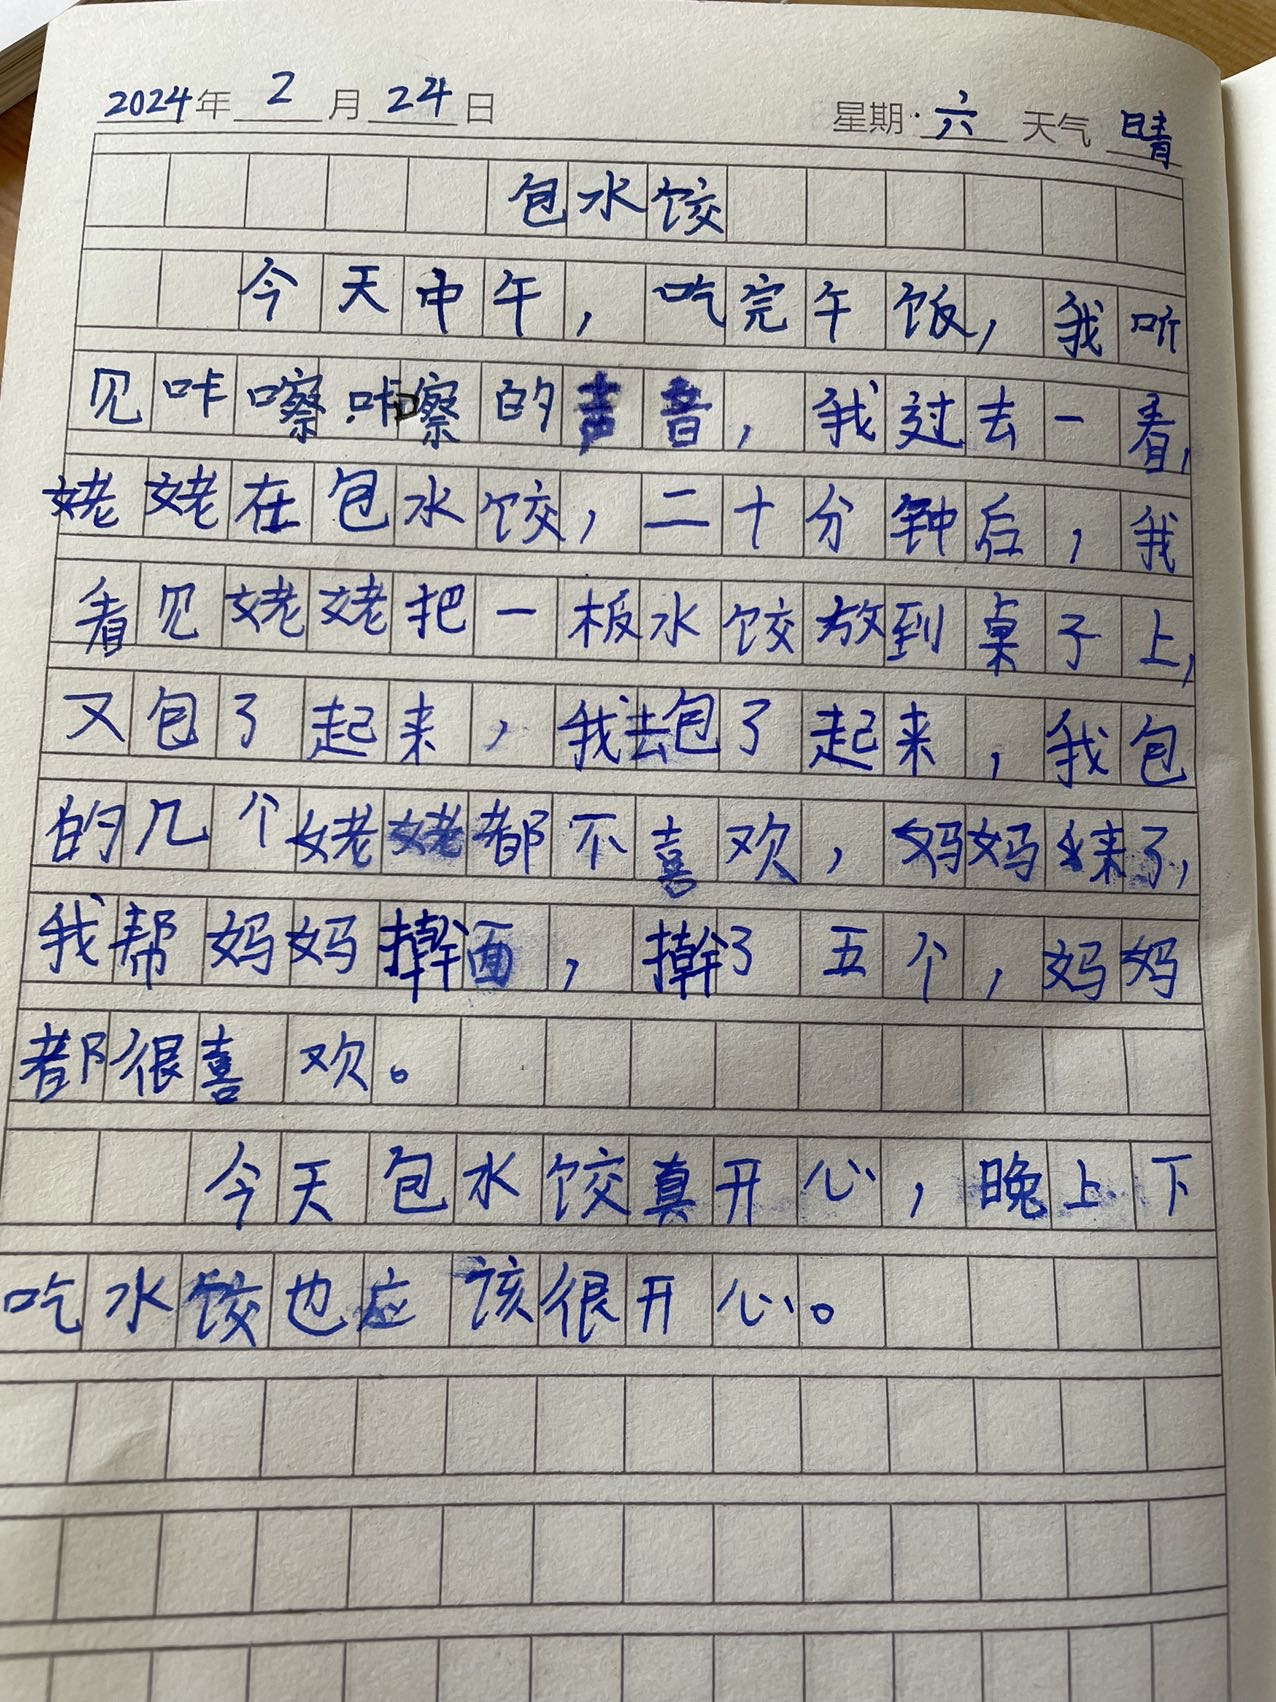 2024年 2 月 24 日 星期 六 天气 晴
包水饺
今天中午，吃完午饭，我听
见咔嚓咔嚓的声音，我过去一看，
姥姥在包水饺，二十分钟后，我
看见姥姥把一板水饺放到桌子上，
又包了起来，我去包了起来，我包
的几个姥姥都不喜欢，妈妈来了，
我帮妈妈擀面，擀了五个，妈妈
都很喜欢。
今天包水饺真开心，晚上下
吃水饺也应该很开心。